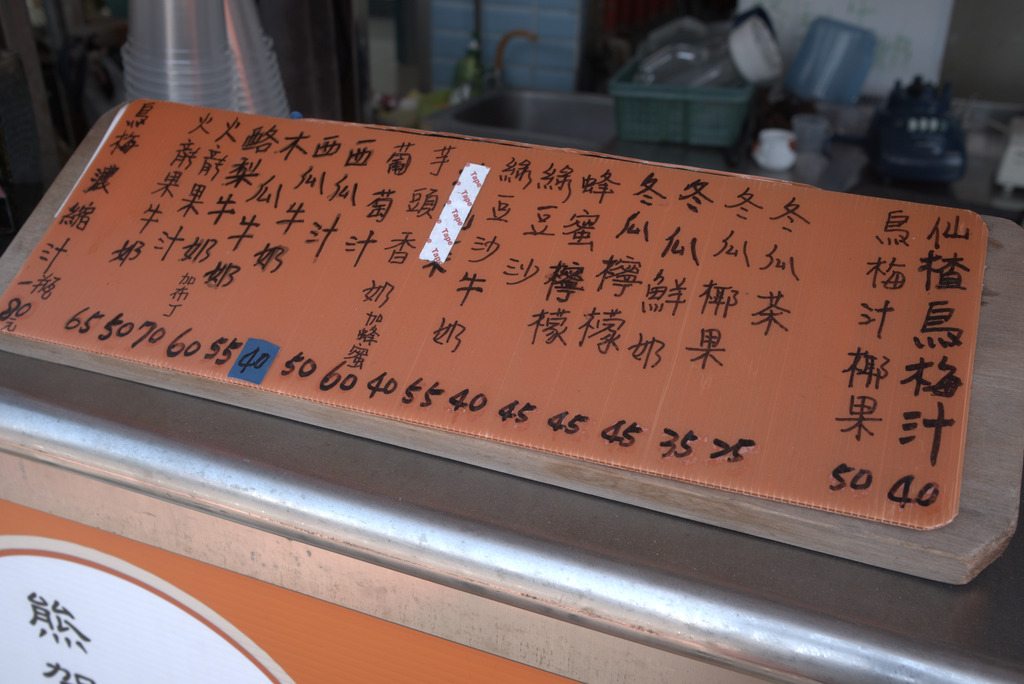 仙楂烏梅汁 40
烏梅汁椰果 50
冬瓜茶 25
冬瓜椰果 35
冬瓜鮮奶 45
冬瓜檸檬 45
蜂蜜檸檬 45
綠豆沙 40
綠豆沙牛奶 55
Tape Tape Tape Tape 40
芋頭香奶加蜂蜜 60
葡萄汁 50
西瓜汁 40
西瓜牛奶 55
木瓜牛奶 60
酪梨牛奶加布丁 70
火龍果汁 50
火龍果牛奶 65
烏梅濃縮汁一瓶 80元
熊